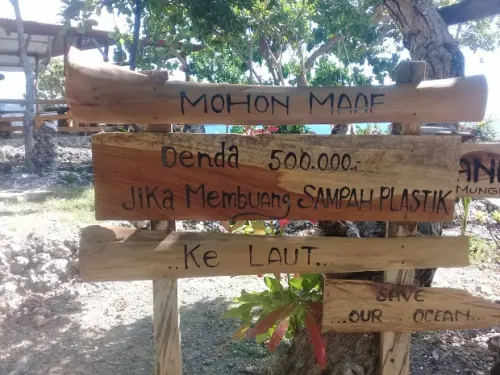 MOHON MAAF
Denda 500.000.-
JIKA Membuang SAMPAH PLASTIK
..Ke LAUT...
SAVE
...OUR OCEAN....